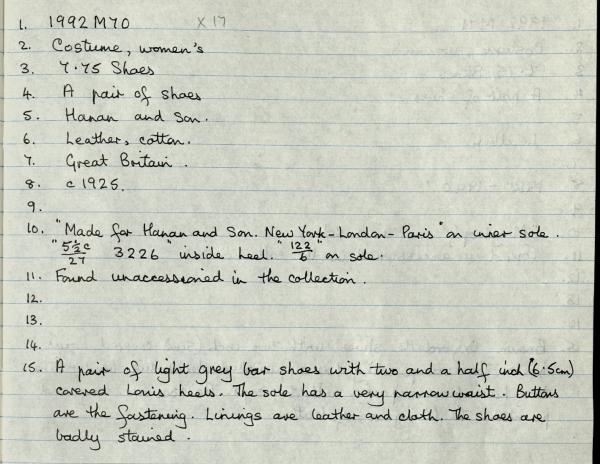 1. 1992 M70 X17
2. Costume, women's
3. 7.75 Shoes
4. A pair of shoes
5. Hanan and Son.
6. Leather, cotton.
7. Great Britain.
8. c 1925.
9.
10. "Made for Hanan and Son. New York - London - Paris" on inner sole.
"5½c/27 3226" inside heel. "122/6" on sole.
11. Found unaccessioned in the collection.
12.
13.
14.
15. A pair of light grey bar shoes with two and a half inch (6.5cm)
covered Louis heels. The sole has a very narrow waist. Buttons
are the fastening. Linings are leather and cloth. The shoes are
badly stained.